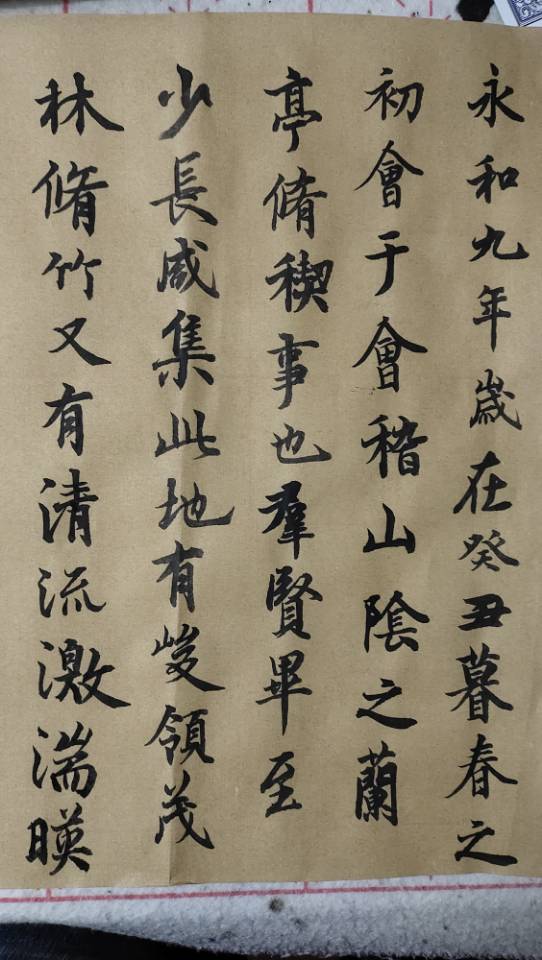 永和九年歲在癸丑暮春之
初會于會稽山陰之蘭
亭脩稧事也羣賢畢至
少長咸集此地有峻領茂
林脩竹又有清流激湍暎